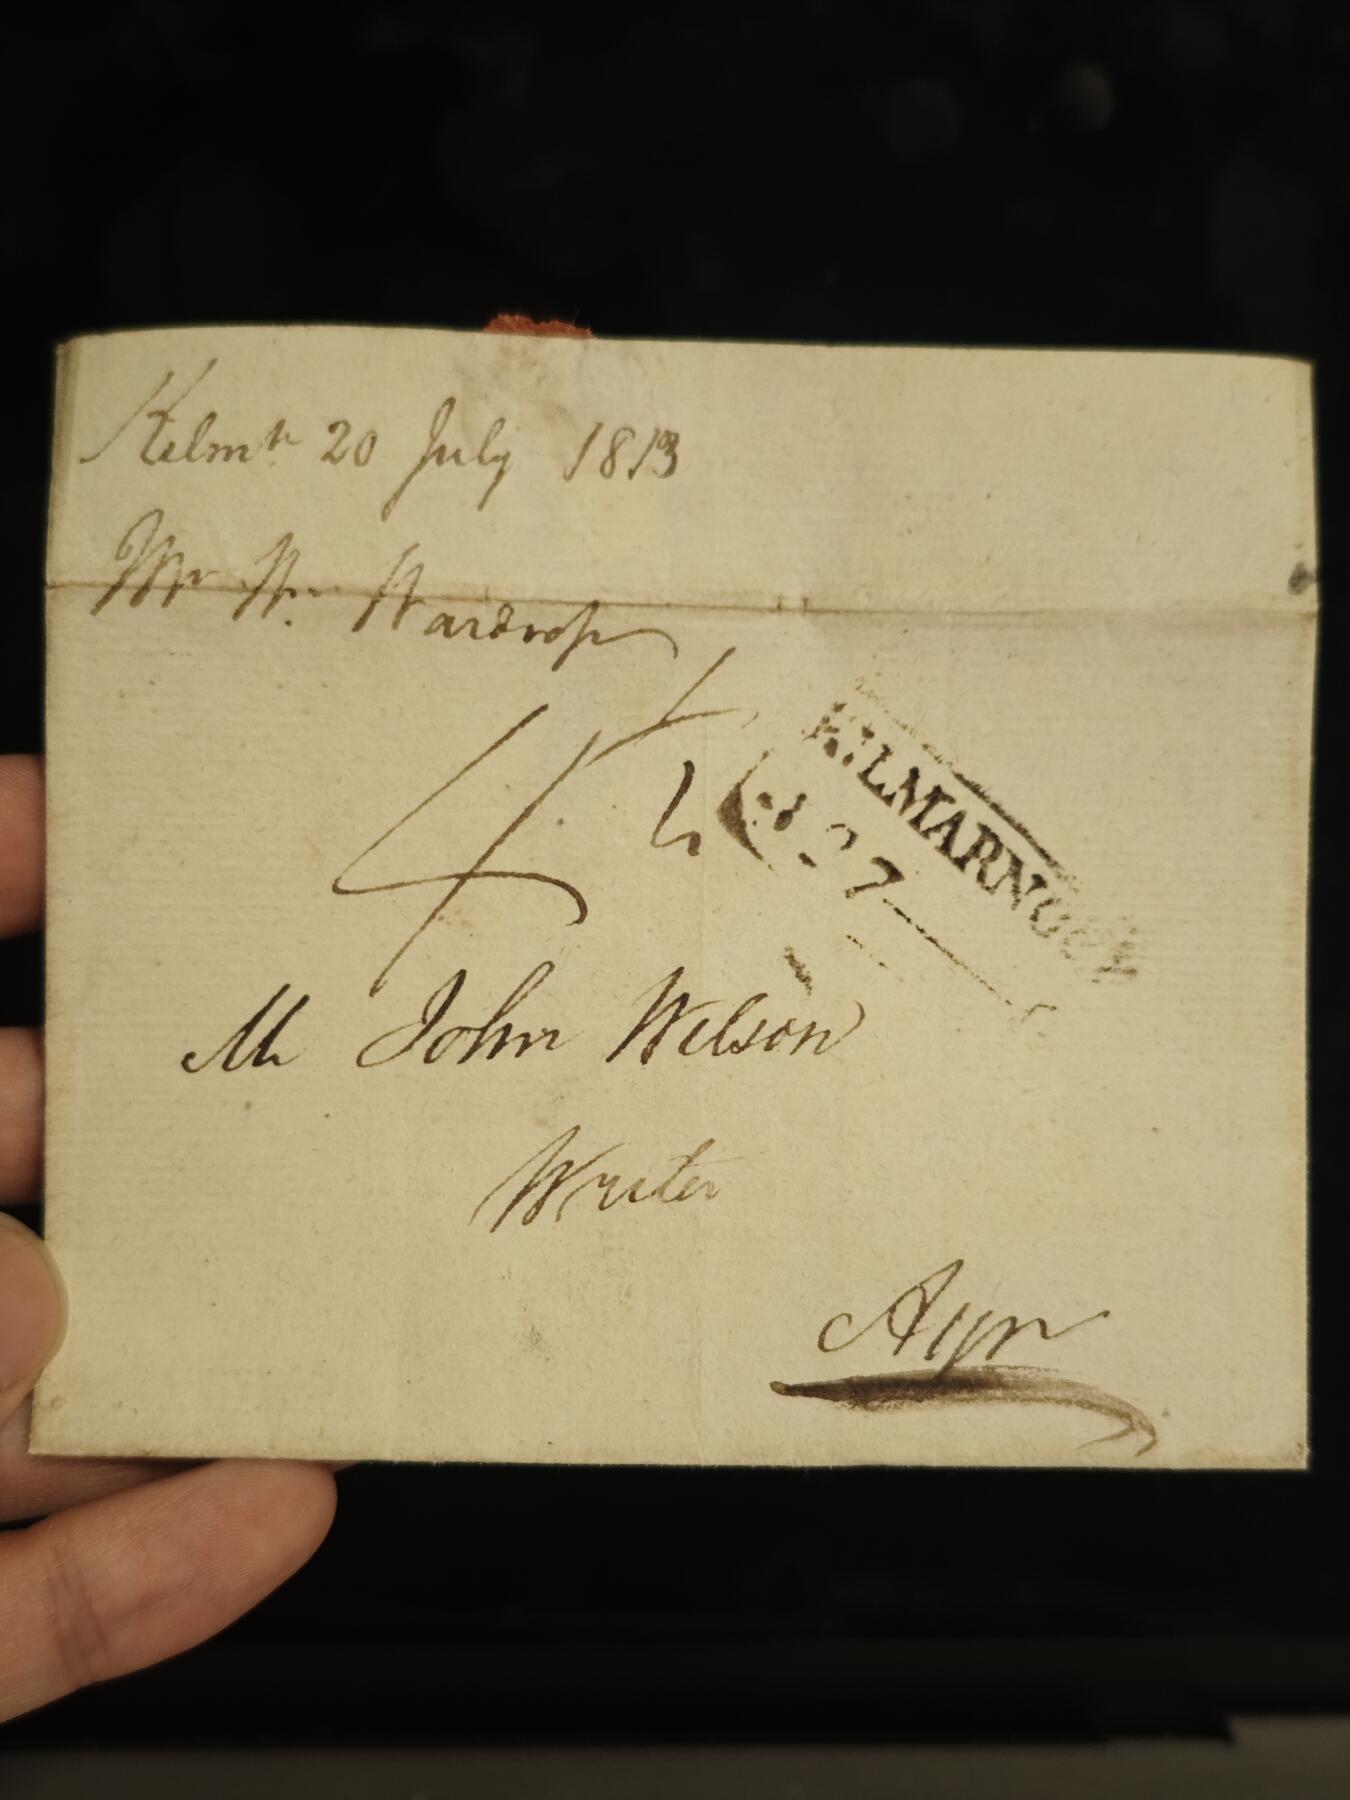 Kilmk 20 July 1813
Mr Wm Wardrop
4 1/2
KILMARNOCK
Mr John Wilson
Writer
Ayr